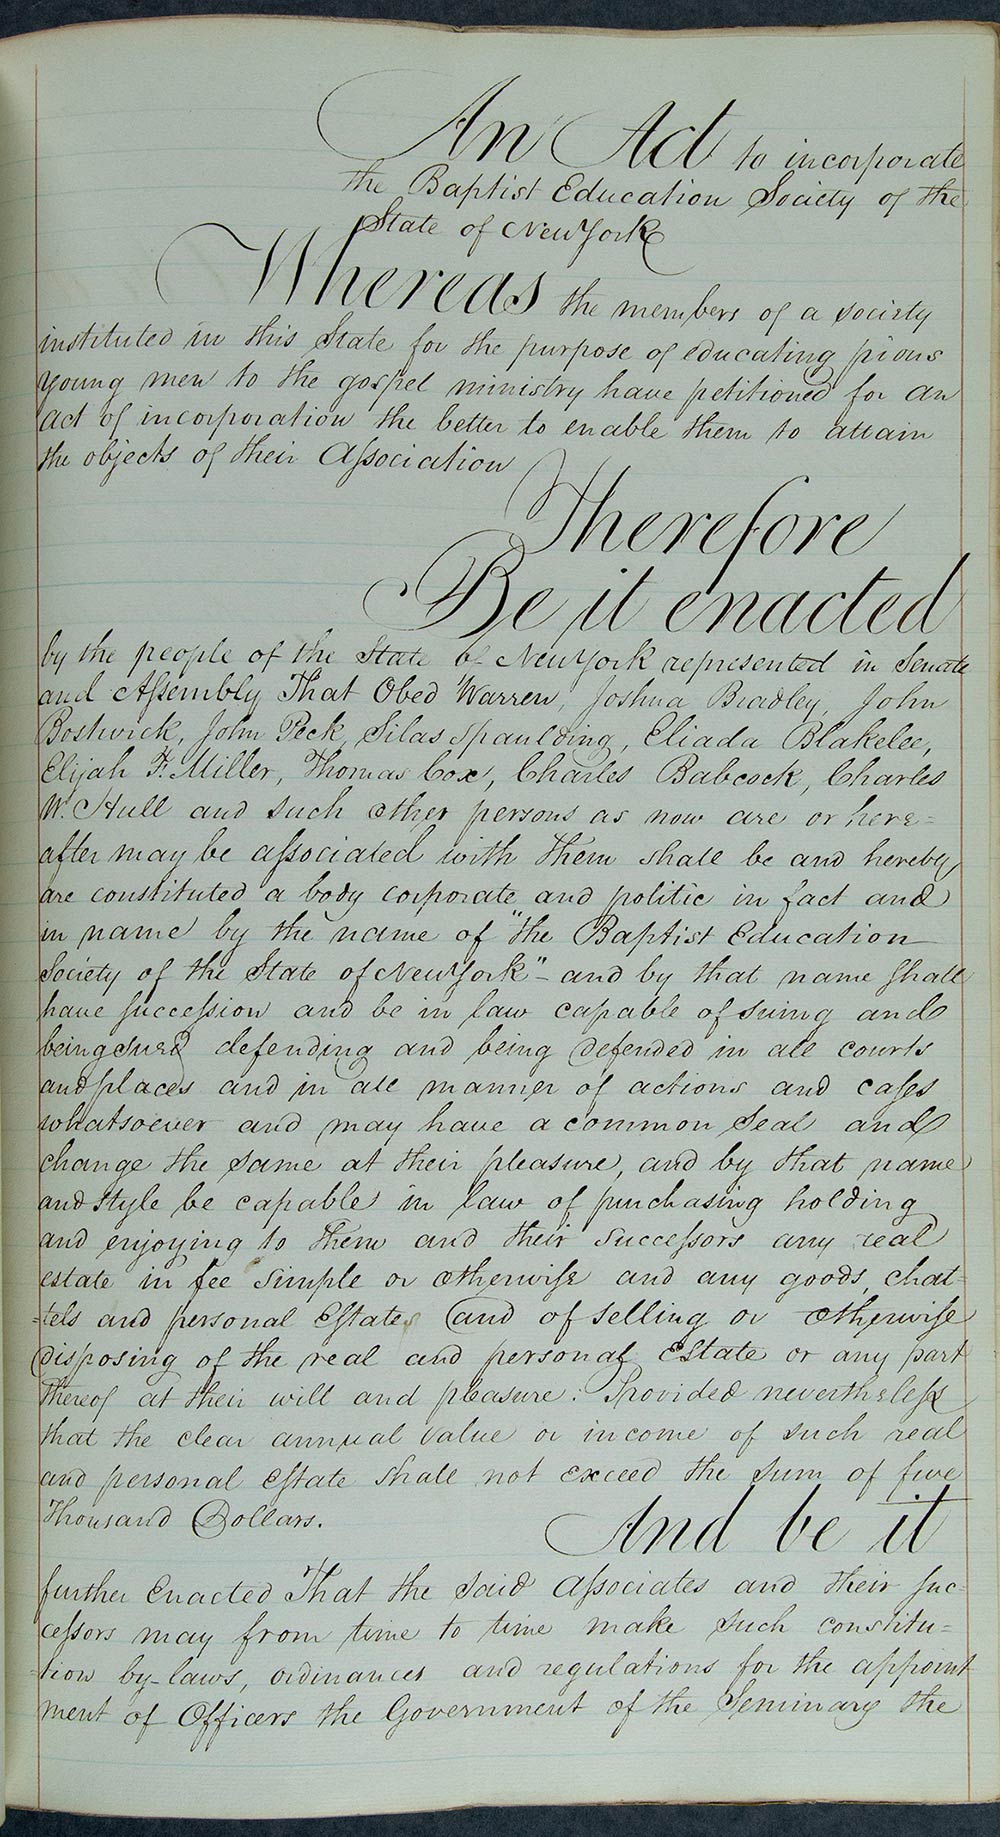 An Act to incorporate
the Baptist Education Society of the
State of New York
Whereas the members of a society
instituted in this State for the purpose of educating pious
young men to the gospel ministry have petitioned for an
act of incorporation the better to enable them to attain
the objects of their Aſsociation
Therefore
Be it enacted
by the people of the State of New York represented in Senate
and Aſsembly That Obed Warren, Joshua Bradley, John
Bostwick, John Peck, Silas Spaulding, Eliada Blakelee,
Elijah F. Miller, Thomas Cox, Charles Babcock, Charles
W. Hull and such other persons as now are or here=
after may be aſsociated with them shall be and hereby
are constituted a body corporate and politic in fact and
in name by the name of "the Baptist Education
Society of the State of New York" - and by that name shall
have succeſsion and be in law capable of suing and
being sued defending and being defended in all courts
and places and in all manner of actions and caſes
whatsoever and may have a common Seal and
change the same at their pleasure, and by that name
and style be capable in law of purchasing holding
and enjoying to them and their succeſsors any real
estate in fee simple or otherwiſe and any goods, chat=
=tels and personal Eſtate, and of selling or otherwiſe
disposing of the real and personal Estate or any part
thereof at their will and pleasure: Provided nevertheleſs
that the clear annual value or income of such real
and personal eſtate shall not exceed the sum of five
Thousand Dollars. And be it
further Enacted That the said Aſsociates and their suc=
ceſsors may from time to time make such constitu=
=tion by-laws, ordinances and regulations for the appoint
ment of Officers the Government of the Seminary the